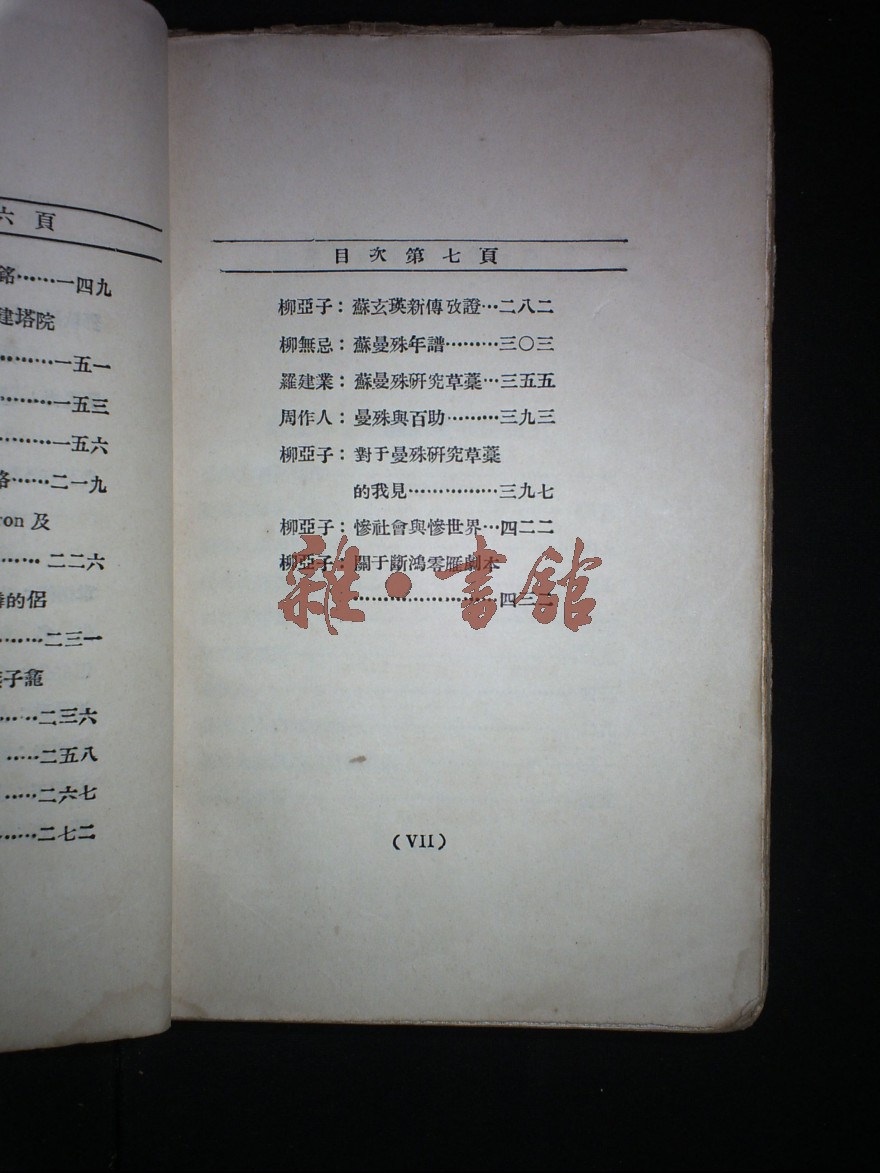 六頁
銘……一四九
建塔院
…………一五一
…………一五三
…………一五六
……二一九
ron 及
………二二六
的侶
………二三一
子龕
……二三六
……二五八
……二六七
……二七二
目次第七頁
柳亞子：蘇玄瑛新傳攷證…二八二
柳無忌：蘇曼殊年譜………三〇三
羅建業：蘇曼殊研究草藁…三五五
周作人：曼殊與百助………三九三
柳亞子：對于曼殊研究草藁
的我見……………三九七
柳亞子：慘社會與慘世界…四二二
柳亞子：關于斷鴻零雁劇本
………………………四三二
雜·書館
(VII)